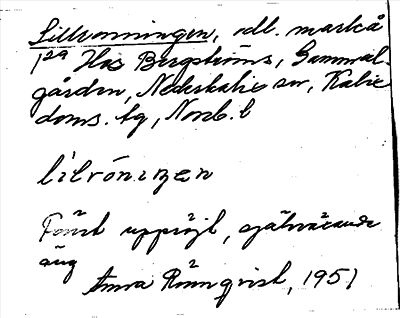 Lillröningen, odl. mark å
1⁰⁹ Hos Bergströms, Gammal-
gården, Nederkalix sn, Kalix
doms. tg, Norrb. l
lilrónıŋen
Förut uppröjt, självväxande
äng
Anna Rönnqvist, 1951